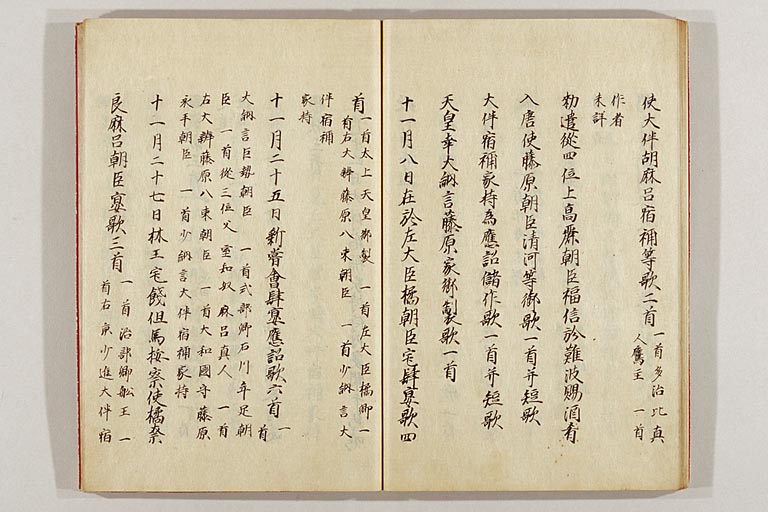 使大伴胡麻呂宿祢等歌二首 一首多治比真
人鷹主 一首
作者
未詳
勅遣從四位上高麗朝臣福信於難波賜酒肴
入唐使藤原朝臣清河等御歌一首并短歌
大伴宿祢家持為應詔儲作歌一首并短歌
天皇幸大納言藤原家御製歌一首
十一月八日在於左大臣橘朝臣宅肆宴歌四
首 一首太上天皇御製 一首左大臣橘卿一
首右大辨藤原八束朝臣 一首少納言大
伴宿祢
家持
十一月二十五日新嘗會肆宴應詔歌六首 一
首
大納言巨勢朝臣 一首式部卿石川年足朝
臣 一首從三位文室知奴麻呂真人 一首
右大辨藤原八束朝臣 一首大和國守藤原
永手朝臣 一首少納言大伴宿祢家持
十一月二十七日林王宅餞但馬按察使橘奈
良麻呂朝臣宴歌三首 一首治部卿船王 一
首右京少進大伴宿